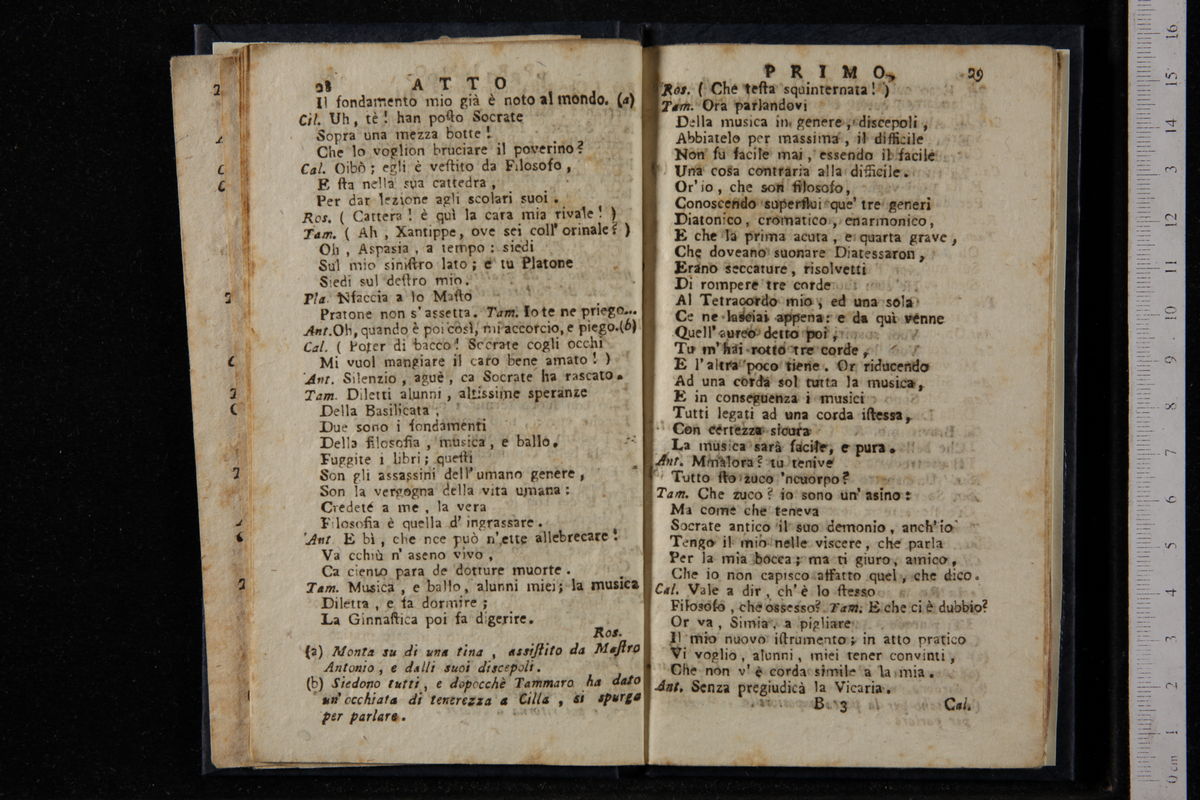 28 ATTO
Il fondamento mio già è noto al mondo. (a)
Cil. Uh, tè! han poſto Socrate
Sopra una mezza botte!
Che lo voglion bruciare il poverino?
Cal. Oibò; egli è veſtito da Filosofo,
E ſta nella sua cattedra,
Per dar lezione agli scolari suoi.
Ros. ( Cattera! è quì la cara mia rivale! )
Tam. ( Ah, Xantippe, ove sei coll' orinale? )
Oh, Aspasia, a tempo: siedi
Sul mio siniſtro lato; e tu Platone
Siedi sul deſtro mio.
Pla. Nfaccia a lo Maſto
Pratone non s' assetta. Tam. Io te ne priego...
Ant. Oh, quando è poi così, mi accorcio, e piego. (b)
Cal. ( Poter di bacco! Socrate cogli occhi
Mi vuol mangiare il caro bene amato! )
Ant. Silenzio, aguè, ca Socrate ha rascato.
Tam. Diletti alunni, altissime speranze
Della Basilicata,
Due sono i fondamenti
Della filosofia, musica, e ballo.
Fuggite i libri; queſti
Son gli assassini dell' umano genere,
Son la vergogna della vita umana:
Credete a me, la vera
Filosofia è quella d' ingrassare.
Ant. E bì, che nce può n' ette allebrecare!
Va cchiù n' aseno vivo,
Ca ciento para de dotture muorte.
Tam. Musica, e ballo, alunni miei; la musica
Diletta, e fa dormire;
La Ginnaſtica poi fa digerire.
Ros.
(a) Monta su di una tina, assiſtito da Maſtro
Antonio, e dalli suoi discepoli.
(b) Siedono tutti, e dopocchè Tammaro ha dato
un' occhiata di tenerezza a Cilla, si spurga
per parlare.
PRIMO. 29
Ros. ( Che teſta squinternata! )
Tam. Ora parlandovi
Della musica in genere, discepoli,
Abbiatelo per massima, il difficile
Non fu facile mai, essendo il facile
Una cosa contraria alla difficile.
Or' io, che son filosofo,
Conoscendo superflui que' tre generi
Diatonico, cromatico, enarmonico,
E che la prima acuta, e quarta grave,
Che doveano suonare Diatessaron,
Erano seccature, risolvetti
Di rompere tre corde
Al Tetracordo mio, ed una sola
Ce ne lasciai appena: e da quì venne
Quell' aureo detto poi,
Tu m' hai rotto tre corde,
E l' altra poco tiene. Or riducendo
Ad una corda sol tutta la musica,
E in conseguenza i musici
Tutti legati ad una corda iſtessa,
Con certezza sicura
La musica sarà facile, e pura.
Ant. Mmalora? tu tenive
Tutto ſto zuco 'ncuorpo?
Tam. Che zuco? io sono un' asino:
Ma come che teneva
Socrate antico il suo demonio, anch' io
Tengo il mio nelle viscere, che parla
Per la mia bocca; ma ti giuro, amico,
Che io non capisco affatto quel, che dico.
Cal. Vale a dir, ch' è lo ſtesso
Filosofo, che ossesso? Tam. E che ci è dubbio?
Or va, Simia, a pigliare
Il mio nuovo iſtrumento; in atto pratico
Vi voglio, alunni, miei tener convinti,
Che non v' è corda simile a la mia.
Ant. Senza pregiudicà la Vicaria.
B 3 Cal.
0 cm 1 2 3 4 5 6 7 8 9 10 11 12 13 14 15 16